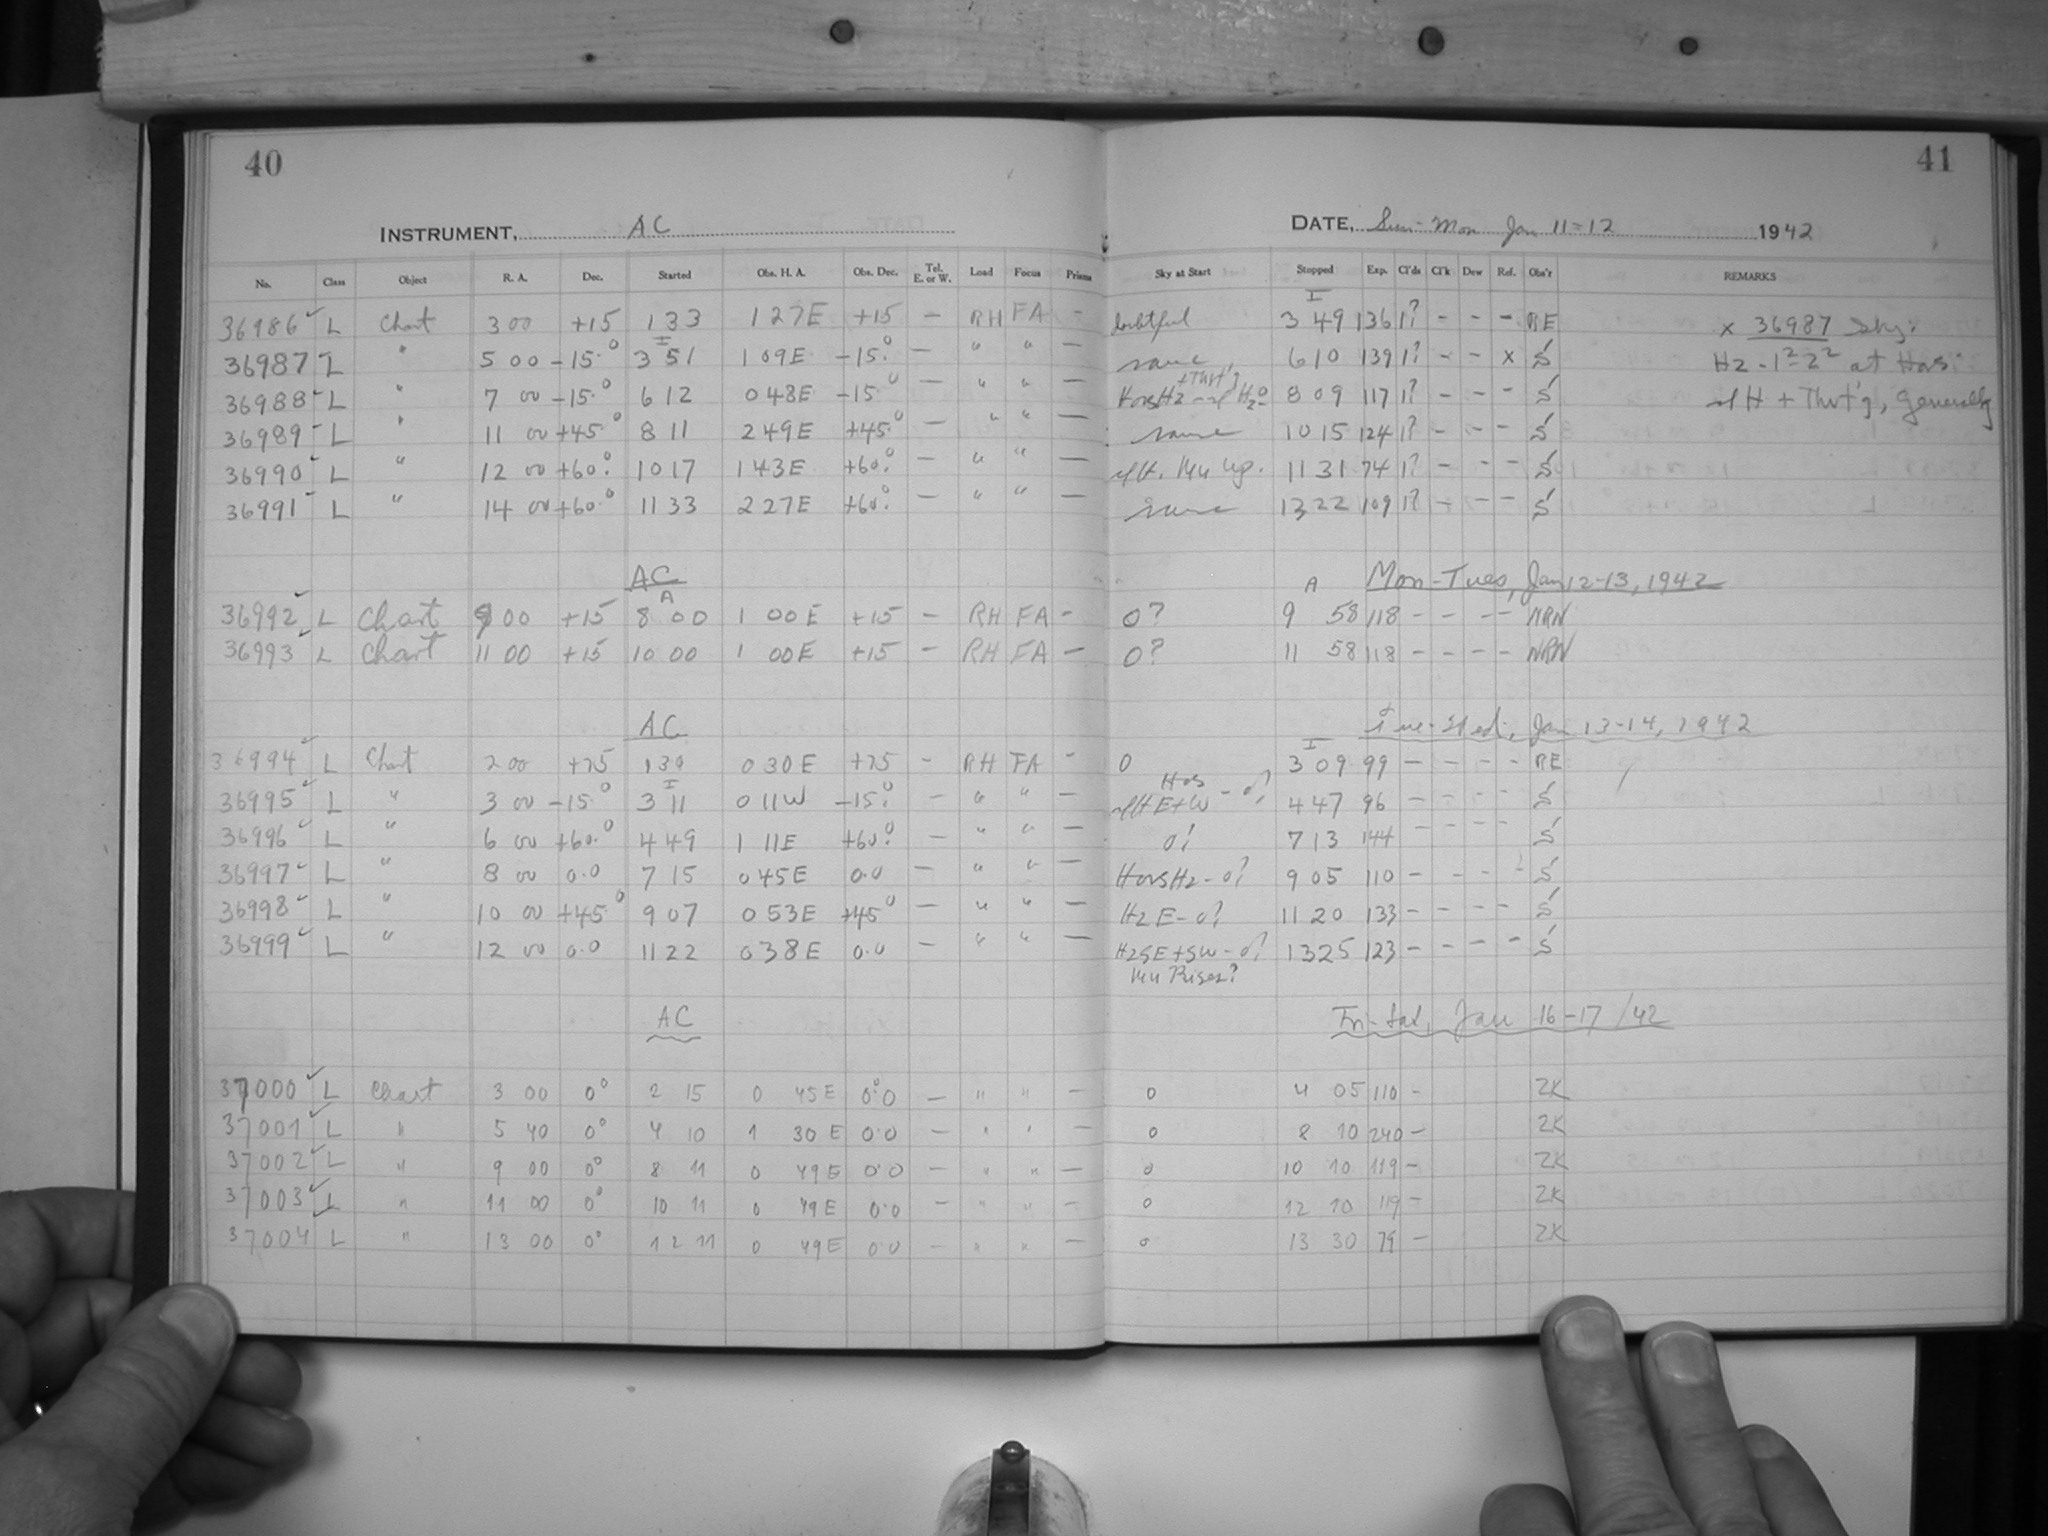 40
41
INSTRUMENT, AC
DATE, Sun-Mon Jan 11-12 1942
No. Class Object R. A. Dec. Started Obs. H. A. Obs. Dec. Tel. E. or W. Load Focus Prisms Sky at Start Stopped Exp. Cl'ds Cl'k Dew Ref. Obs'r REMARKS
36986 L Chart 3 00 +15 1 33 1 27E +15 - RH FA - doubtful 3 49 136 1? - - - RE x 36987 Sky:
36987 L " 5 00 -15.° 3 51 1 09E -15.° - " " - same 6 10 139 1? - - x S H2 - 1²-2² at Hors:
36988 L " 7 00 -15.° 6 12 0 48E -15.° - " " - HorsH2 8 09 117 1? - - - S H + Tht'g, Generally
36989 L " 11 00 +45.° 8 11 2 49E +45.° - " " - same 10 15 124 1? - - - S
36990 L " 12 00 +60.° 10 17 1 43E +60.° - " " - up. 11 31 74 1? - - - S
36991 L " 14 00 +60.° 11 33 2 27E +60.° - " " - same 13 22 109 1? - - - S
AC Mon-Tues, Jan 12-13, 1942
36992 L Chart 9 00 +15 8 00 1 00E +15 - RH FA - 0? 9 58 118 - - - - NRN
36993 L Chart 11 00 +15 10 00 1 00E +15 - RH FA - 0? 11 58 118 - - - - NRN
AC Tue-Wed, Jan 13-14, 1942
36994 L Chart 2 00 +75 1 30 0 30E +75 - RH FA - 0 3 09 99 - - - - RE
36995 L " 3 00 -15.° 3 11 0 11W -15.° - " " - Hors E+W - 0? 4 47 96 - - - - S
36996 L " 6 00 +60.° 4 49 1 11E +60.° - " " - 0? 7 13 144 - - - - S
36997 L " 8 00 0.0 7 15 0 45E 0.0 - " " - HorsH2-0? 9 05 110 - - - - S
36998 L " 10 00 +45.° 9 07 0 53E +45° - " " - H2 E-0? 11 20 133 - - - - S
36999 L " 12 00 0.0 11 22 0 38E 0.0 - " " - H2SE+SW-0? 13 25 123 - - - - S
Rises?
AC Fri-Sat, Jan 16-17/42
37000 L Chart 3 00 0° 2 15 0 45E 0.0 - " " - 0 4 05 110 - ZK
37001 L " 5 40 0° 4 10 1 30E 0.0 - " " - 0 8 10 240 - ZK
37002 L " 9 00 0° 8 11 0 49E 0.0 - " " - 0 10 10 119 - ZK
37003 L " 11 00 0° 10 11 0 49E 0.0 - " " - 0 12 10 119 - ZK
37004 L " 13 00 0° 12 11 0 49E 0.0 - " " - 0 13 30 79 - ZK